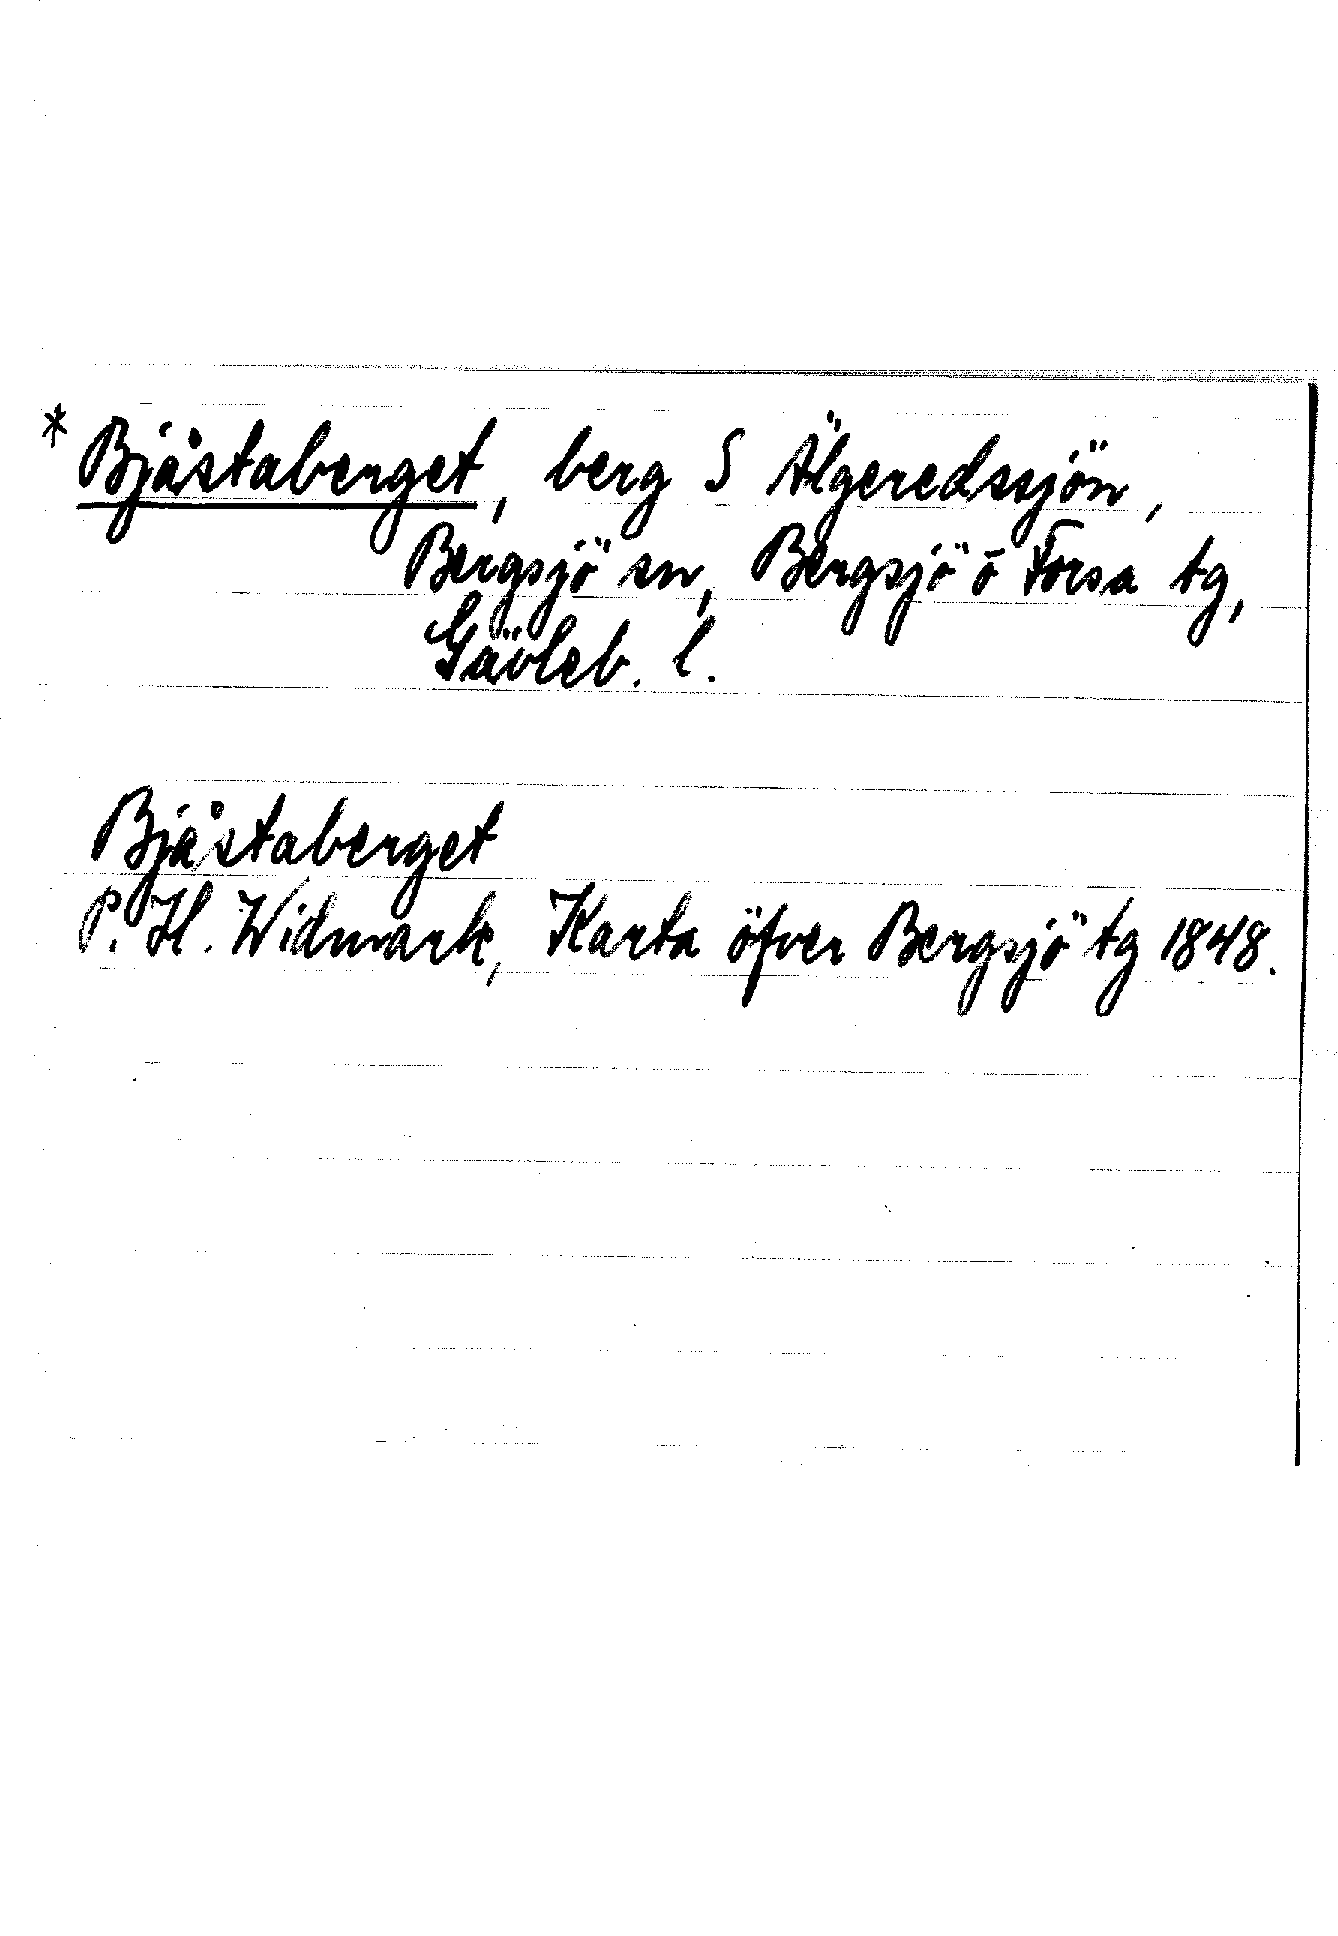 * Bjåstaberget, berg S Älgeredssjön,
Bergsjö sn, Bergsjö o Forsa tg,
Gävleb. l.
Bjåstaberget
P. H. Widmark, Karta öfver Bergsjö tg 1848.